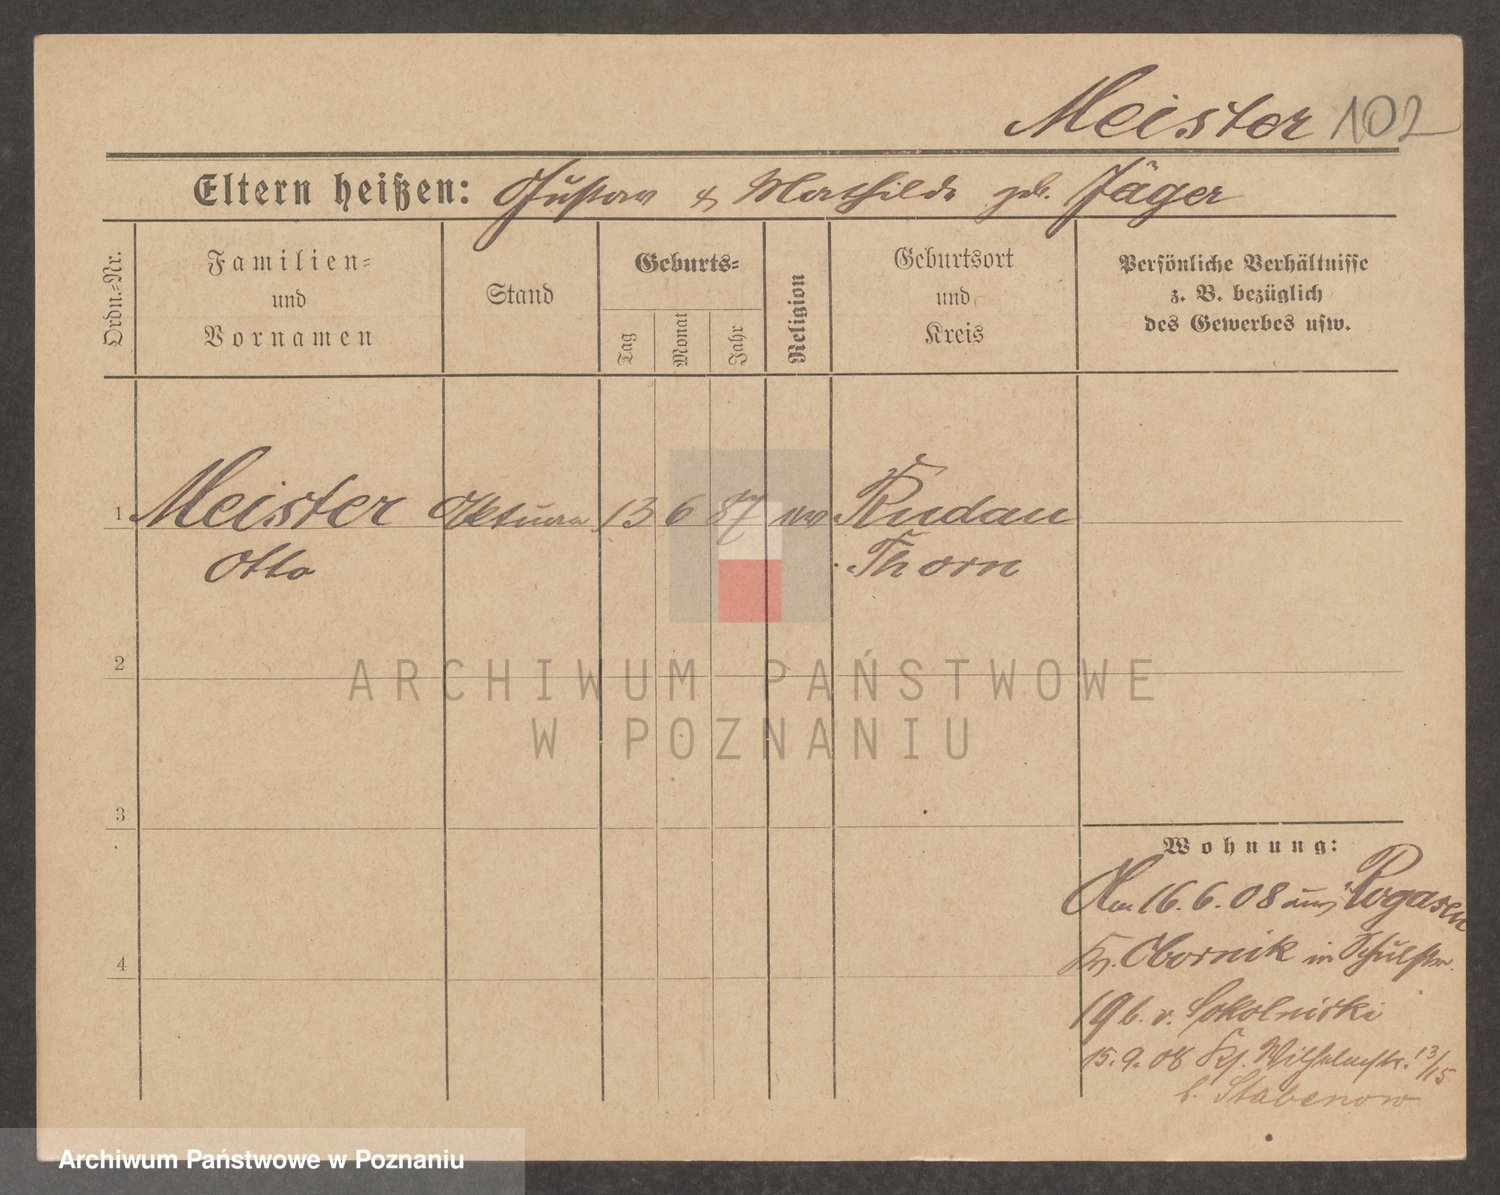 Meister 102
Eltern heißen: Gustav & Mathilde geb. Jäger
Ordn.-Nr.
Familien-
und
Vornamen
Stand
Geburts-
Tag
Monat
Jahr
Religion
Geburtsort
und
Kreis
Persönliche Verhältnisse
z. B. bezüglich
des Gewerbes usw.
1 Meister 13 6 87 Rudau
Otto Thorn
2
3
4
Wohnung:
Am 16.6.08 aus Rogasen
Kr. Obornik in Schulstr.
19 b. v. Sokolnicki
15.9.08 Wilhelmstr. 13/15
b. Stabenow
ARCHIWUM PAŃSTWOWE
W POZNANIU
Archiwum Państwowe w Poznaniu